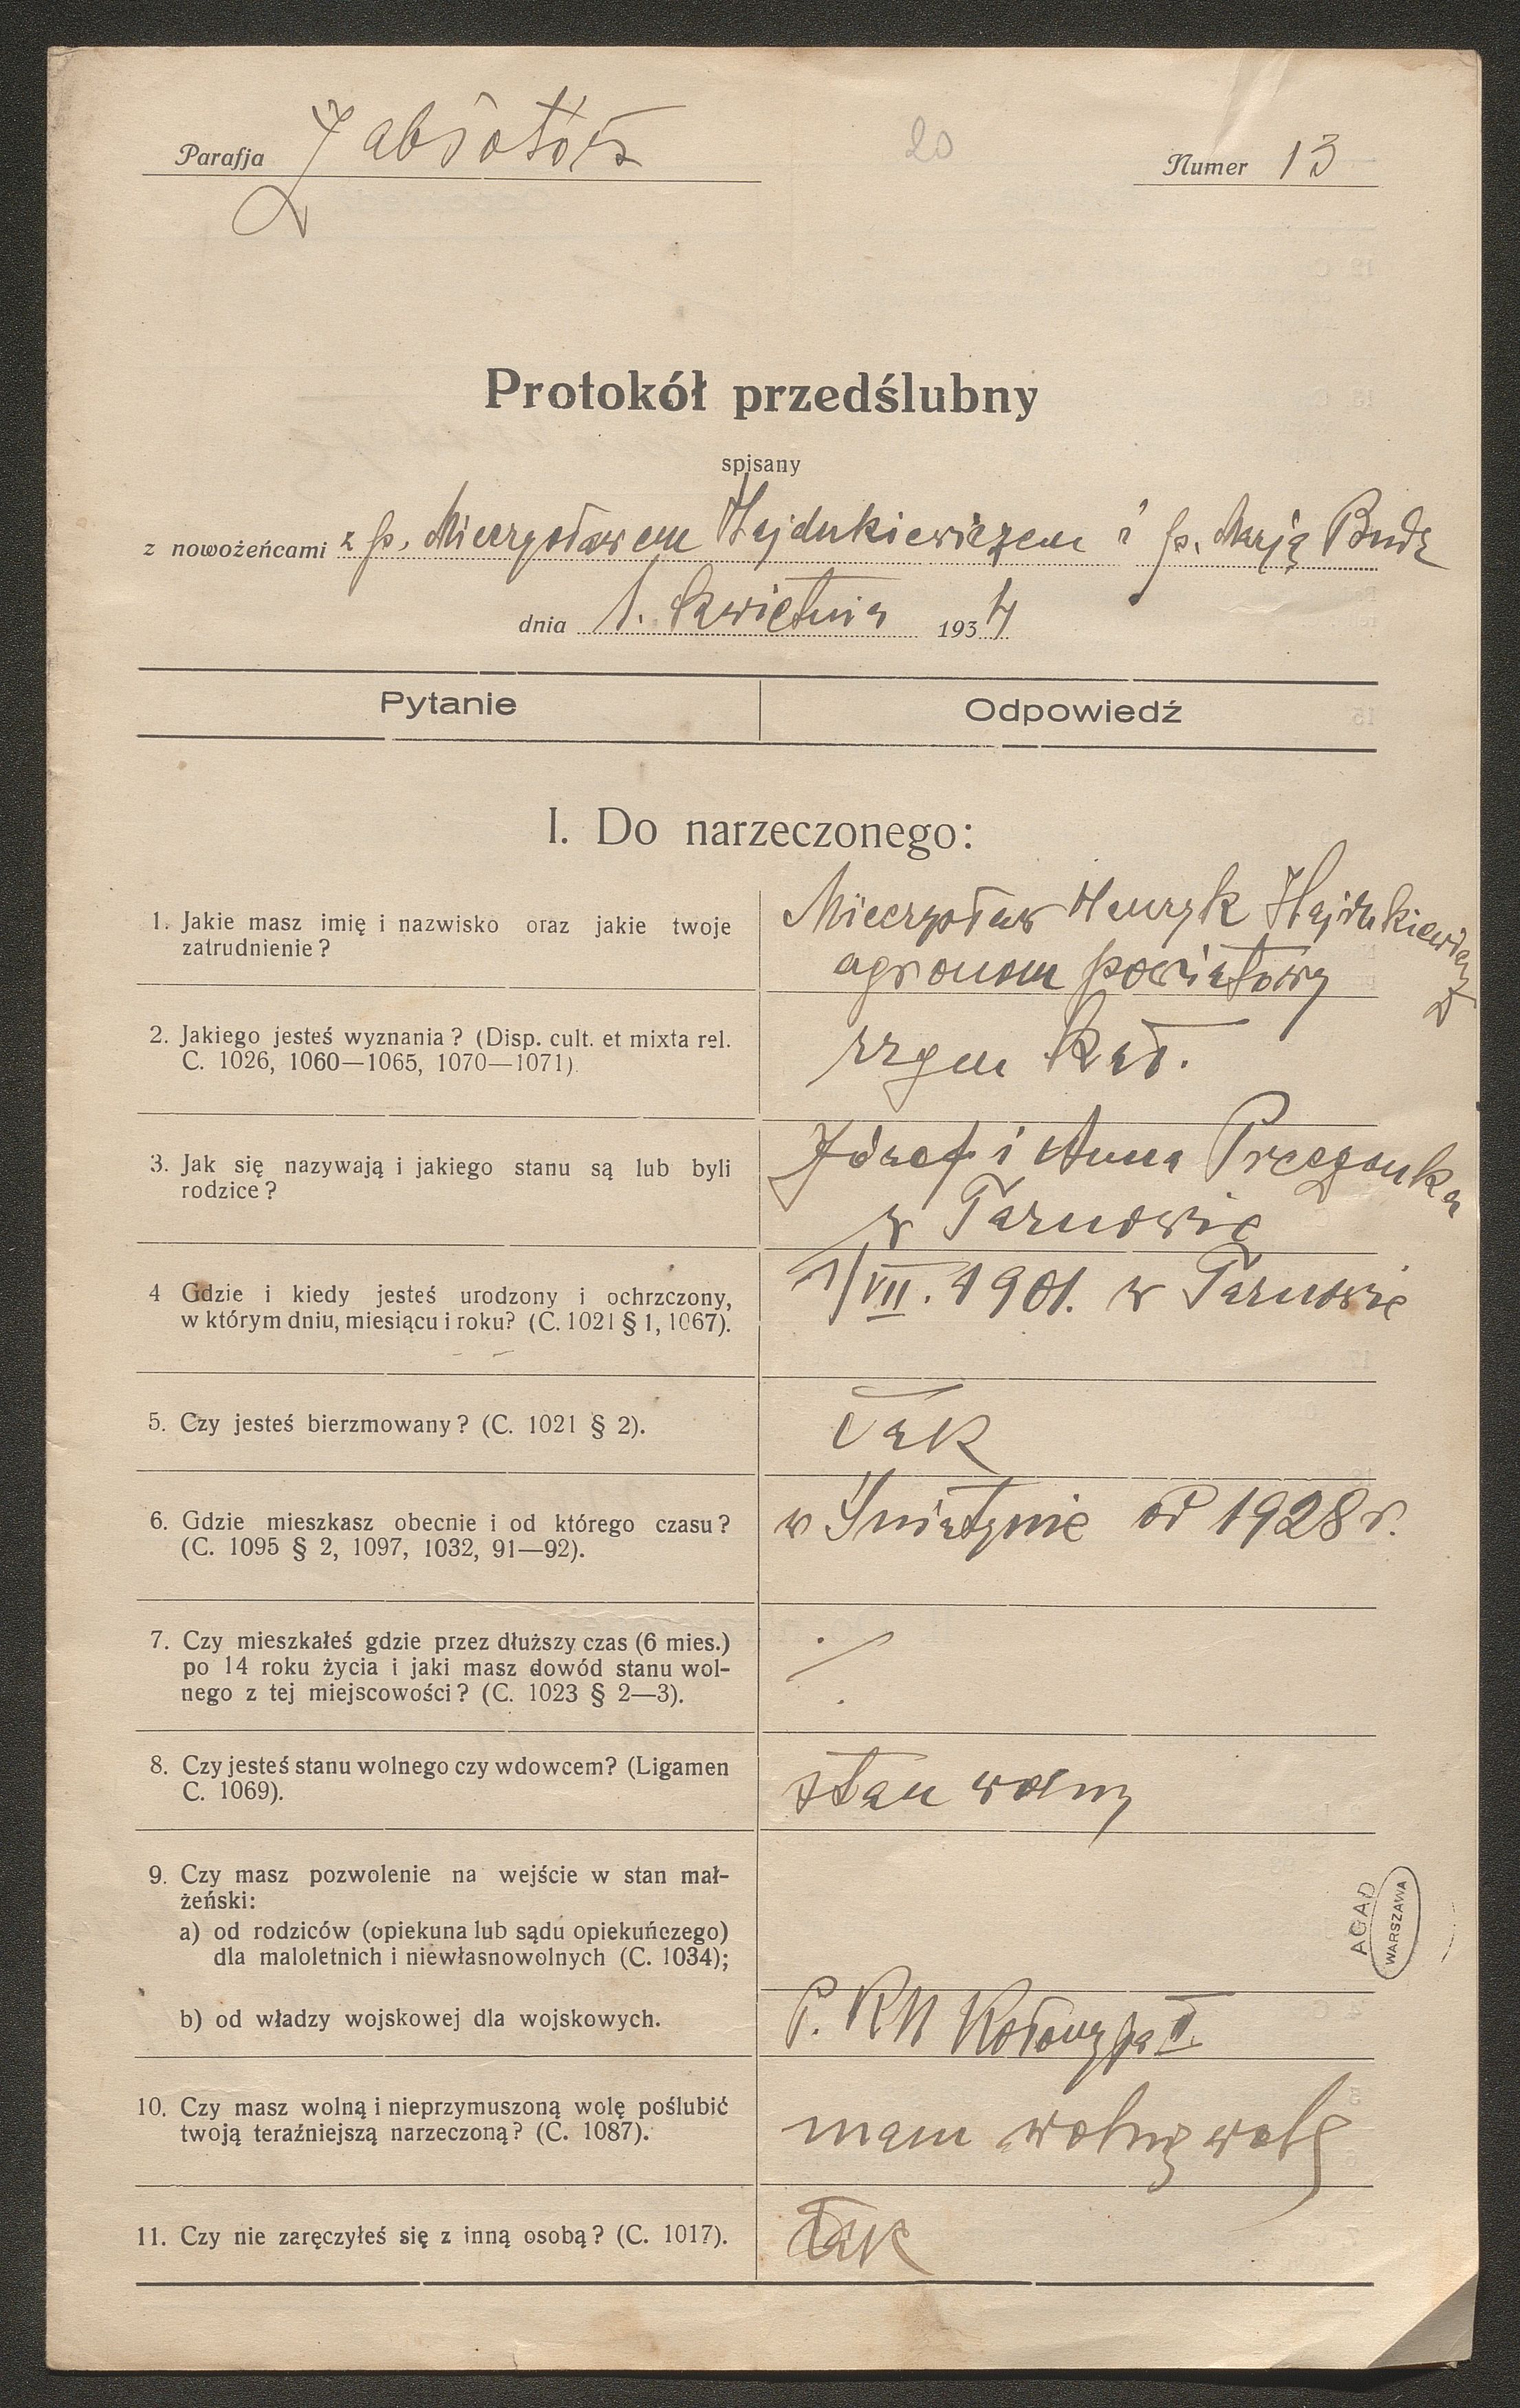 Parafja Zabłotów
20
Numer 13
Protokół przedślubny
spisany
z nowożeńcami z p. Mieczysławem Hajdukiewiczem i p. Marją Budz
dnia 1. kwietnia 1934
Pytanie
Odpowiedź
I. Do narzeczonego:
1. Jakie masz imię i nazwisko oraz jakie twoje
zatrudnienie?
Mieczysław Henryk Hajdukiewicz
agronom powiatowy
2. Jakiego jesteś wyznania? (Disp. cult. et mixta rel.
C. 1026, 1060—1065, 1070—1071).
rzym kat.
3. Jak się nazywają i jakiego stanu są lub byli
rodzice?
Józef i Anna
w Tarnowie
4 Gdzie i kiedy jesteś urodzony i ochrzczony,
w którym dniu, miesiącu i roku? (C. 1021 § 1, 1067).
1/VII. 1901. w Tarnowie
5. Czy jesteś bierzmowany? (C. 1021 § 2).
tak
6. Gdzie mieszkasz obecnie i od którego czasu?
(C. 1095 § 2, 1097, 1032, 91—92).
w Śniatynie od 1928 r.
7. Czy mieszkałeś gdzie przez dłuższy czas (6 mies.)
po 14 roku życia i jaki masz dowód stanu wol-
nego z tej miejscowości? (C. 1023 § 2—3).
./.
8. Czy jesteś stanu wolnego czy wdowcem? (Ligamen
C. 1069).
stan wolny
9. Czy masz pozwolenie na wejście w stan mał-
żeński:
a) od rodziców (opiekuna lub sądu opiekuńczego)
dla maloletnich i niewłasnowolnych (C. 1034);
b) od władzy wojskowej dla wojskowych.
P. K U Kołomyja II.
10. Czy masz wolną i nieprzymuszoną wolę poślubić
twoją teraźniejszą narzeczoną? (C. 1087).
mam wolną wolę
11. Czy nie zaręczyłeś się z inną osobą? (C. 1017).
tak
AGAD
WARSZAWA